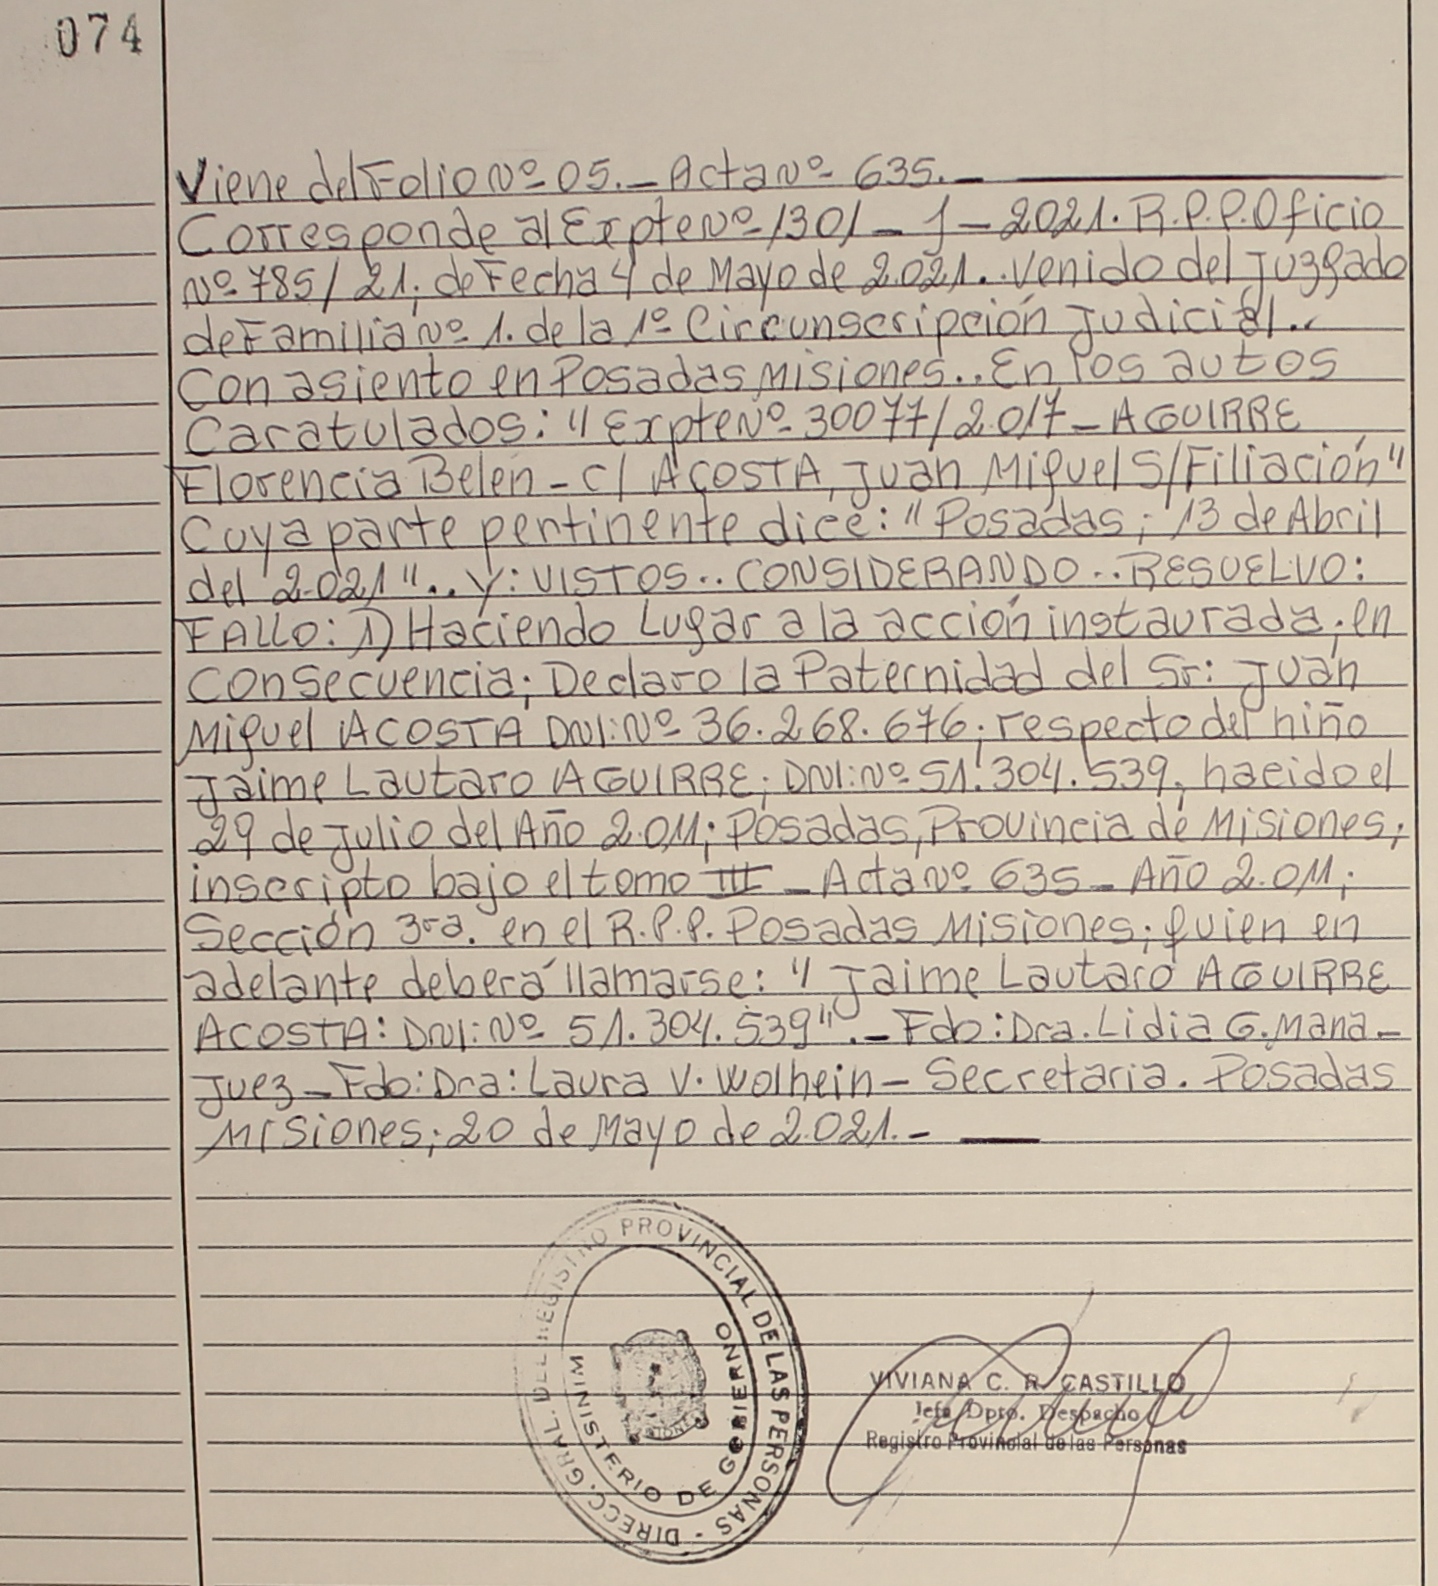 074
Viene del Folio Nº 05._ Acta Nº 635._
Corresponde al Expte Nº 1301 _ J _ 2021. R.P.P. Oficio
Nº 785/21; de Fecha 4 de Mayo de 2.021.. Venido del Juzgado
de Familia Nº 1. de la 1º Circunscripción Judicial..
Con asiento en Posadas Misiones.. En los autos
Caratulados: "Expte Nº 30077/2.017 _ AGUIRRE
Florencia Belén _ c/ ACOSTA, Juan Miguel S/Filiación"
Cuya parte pertinente dice: "Posadas; 13 de Abril
del 2.021".. Y: VISTOS.. CONSIDERANDO.. RESUELVO:
FALLO: 1) Haciendo Lugar a la acción instaurada; en
Consecuencia; Declaro la Paternidad del Sr: Juan
Miguel ACOSTA DNI: Nº 36.268.676; respecto del niño
Jaime Lautaro AGUIRRE; DNI: Nº 51.304.539, nacido el
29 de Julio del Año 2.011; Posadas, Provincia de Misiones;
inscripto bajo el tomo III _ Acta Nº 635 _ Año 2.011;
Sección 3ra. en el R.P.P. Posadas Misiones; quien en
adelante deberá llamarse: "Jaime Lautaro AGUIRRE
ACOSTA: DNI: Nº 51.304.539"._ Fdo: Dra. Lidia G. Mana_
Juez _ Fdo: Dra: Laura V. Wolhein _ Secretaria. Posadas
Misiones; 20 de Mayo de 2.021.-
DIRECC. GRAL. DEL REGISTRO PROVINCIAL DE LAS PERSONAS -
MINISTERIO DE GOBIERNO
VIVIANA C. R. CASTILLO
Jefa Dpto. Despacho
Registro Provincial de las Personas